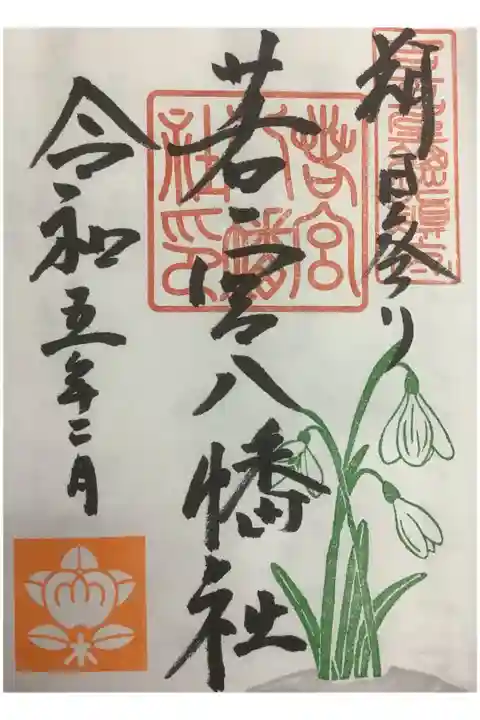 朔日参り
若宮八幡社
令和五年二月
若宮八幡社印